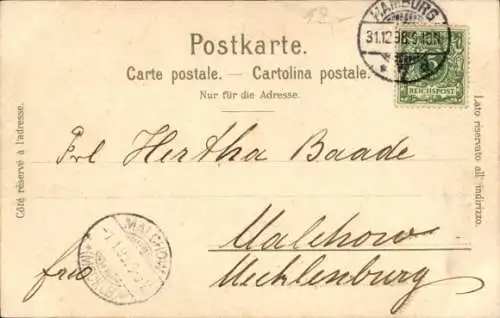 12.-
HAMBURG
31.12.98.9-10N.
REICHSPOST
Postkarte.
Carte postale. — Cartolina postale.
Nur für die Adresse.
Côté réservé à l'adresse.
Lato riservato all' indirizzo.
Frl Hertha Baade
Malchow
Mecklenburg
frco
MALCHOW